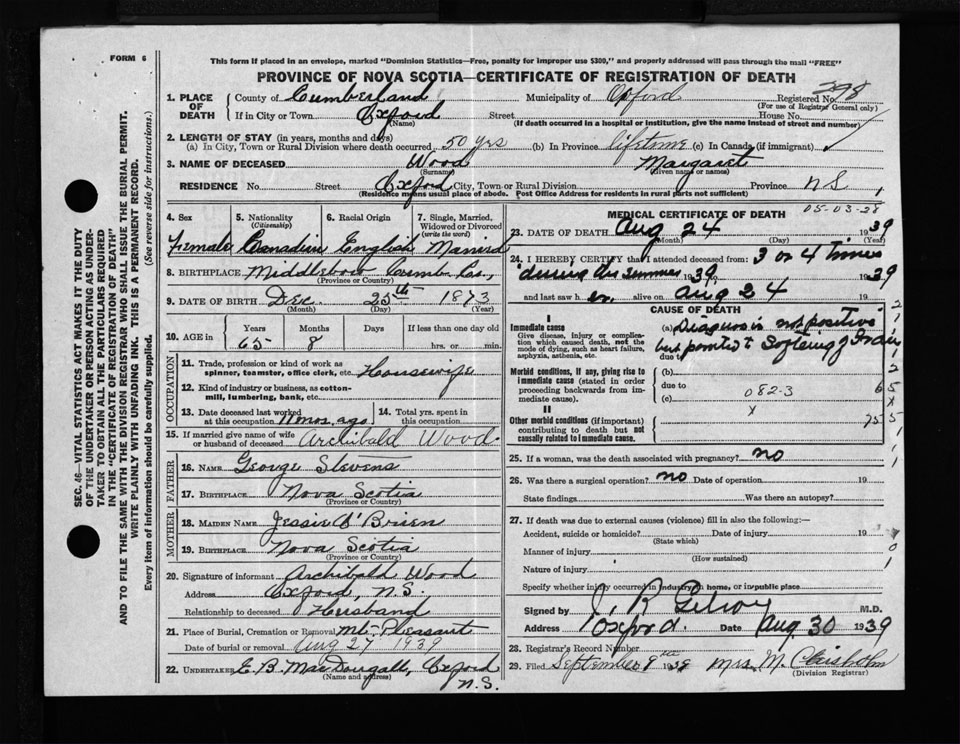 FORM 6
This form if placed in an envelope, marked "Dominion Statistics—Free, penalty for improper use $300," and properly addressed will pass through the mail "FREE"
PROVINCE OF NOVA SCOTIA—CERTIFICATE OF REGISTRATION OF DEATH
SEC. 46—VITAL STATISTICS ACT MAKES IT THE DUTY
OF THE UNDERTAKER OR PERSON ACTING AS UNDER-
TAKER TO OBTAIN ALL THE PARTICULARS REQUIRED
IN THE "CERTIFICATE OF REGISTRATION OF DEATH"
AND TO FILE THE SAME WITH THE DIVISION REGISTRAR WHO SHALL ISSUE THE BURIAL PERMIT.
WRITE PLAINLY WITH UNFADING INK. THIS IS A PERMANENT RECORD.
Every item of information should be carefully supplied. (See reverse side for instructions.)
1. PLACE OF DEATH County of Cumberland Municipality of Oxford Registered No. 398
(For use of Registrar General only)
If in City or Town Oxford Street House No.
(Name) (If death occurred in a hospital or institution, give the name instead of street and number)
2. LENGTH OF STAY (in years, months and days)
(a) In City, Town or Rural Division where death occurred 50 yrs (b) In Province lifetime (c) In Canada (if immigrant)
3. NAME OF DECEASED Wood Margaret
(Surname) (Given name or names)
RESIDENCE No. Street Oxford City, Town or Rural Division Province N S
(Residence means usual place of abode. Post Office Address for residents in rural parts not sufficient)
4. Sex 5. Nationality (Citizenship) 6. Racial Origin 7. Single, Married, Widowed or Divorced (write the word)
Female Canadian English Married
8. BIRTHPLACE Middleboro Cumb. Co.,
(Province or Country)
9. DATE OF BIRTH Dec. 25th 1873
(Month) (Day) (Year)
10. AGE in Years Months Days If less than one day old
65 8 hrs. or min.
OCCUPATION
11. Trade, profession or kind of work as
spinner, teamster, office clerk, etc. Housewife
12. Kind of industry or business, as cotton-
mill, lumbering, bank, etc.
13. Date deceased last worked at this occupation 11 mos. ago 14. Total yrs. spent in this occupation
15. If married give name of wife
or husband of deceased Archibald Wood
FATHER
16. NAME George Stevens
17. BIRTHPLACE Nova Scotia
(Province or Country)
MOTHER
18. MAIDEN NAME Jessie O'Brien
19. BIRTHPLACE Nova Scotia
(Province or Country)
20. Signature of informant Archibald Wood
Address Oxford, N.S.
Relationship to deceased Husband
21. Place of Burial, Cremation or Removal Mt. Pleasant
Date of burial or removal Aug 27 1939
22. UNDERTAKER E. B. MacDougall, Oxford
(Name and address) N.S.
MEDICAL CERTIFICATE OF DEATH
05-03-28
23. DATE OF DEATH Aug 24 1939
(Month) (Day) (Year)
24. I HEREBY CERTIFY that I attended deceased from: 3 or 4 times
during the summer 1939, 1939
and last saw her alive on Aug 24 19
CAUSE OF DEATH
I
Immediate cause
Give disease, injury or complica-
tion which caused death, not the
mode of dying, such as heart failure,
asphyxia, asthenia, etc.
(a) Diagnosis not positive
but pointed to Softening of Brain
due to
Morbid conditions, if any, giving rise to
immediate cause (stated in order
proceeding backwards from im-
mediate cause).
(b)
due to 082-3
(c) x
II
Other morbid conditions (if important)
contributing to death but not
causally related to immediate cause.
25. If a woman, was the death associated with pregnancy? no
26. Was there a surgical operation? no Date of operation 19
State findings Was there an autopsy?
27. If death was due to external causes (violence) fill in also the following:—
Accident, suicide or homicide? Date of injury 19
(State which)
Manner of injury
(How sustained)
Nature of injury
Specify whether injury occurred in industry, in home, or in public place
Signed by J. R. Gilroy M.D.
Address Oxford. Date Aug 30 1939
28. Registrar's Record Number
29. Filed September 8th 1938 Mrs. M. Chisholm
(Division Registrar)